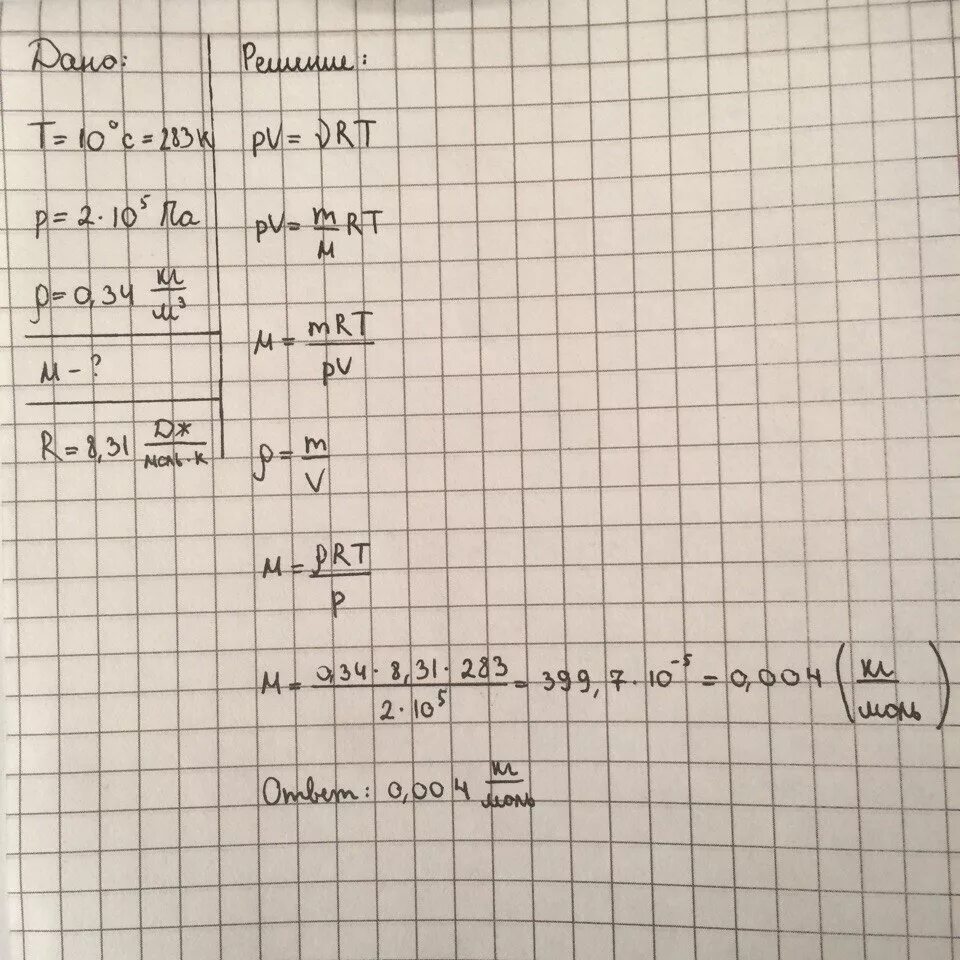 Дано:
T = 10°C = 283К
p = 2·10⁵ Па
ρ = 0,34 кг/м³
M - ?
R = 8,31 Дж/моль·К
Решение:
pV = νRT
pV = m/M RT
M = mRT/pV
ρ = m/V
M = ρRT/p
M = 0,34·8,31·283/2·10⁵ = 399,7·10⁻⁵ = 0,004 (кг/моль)
Ответ: 0,004 кг/моль